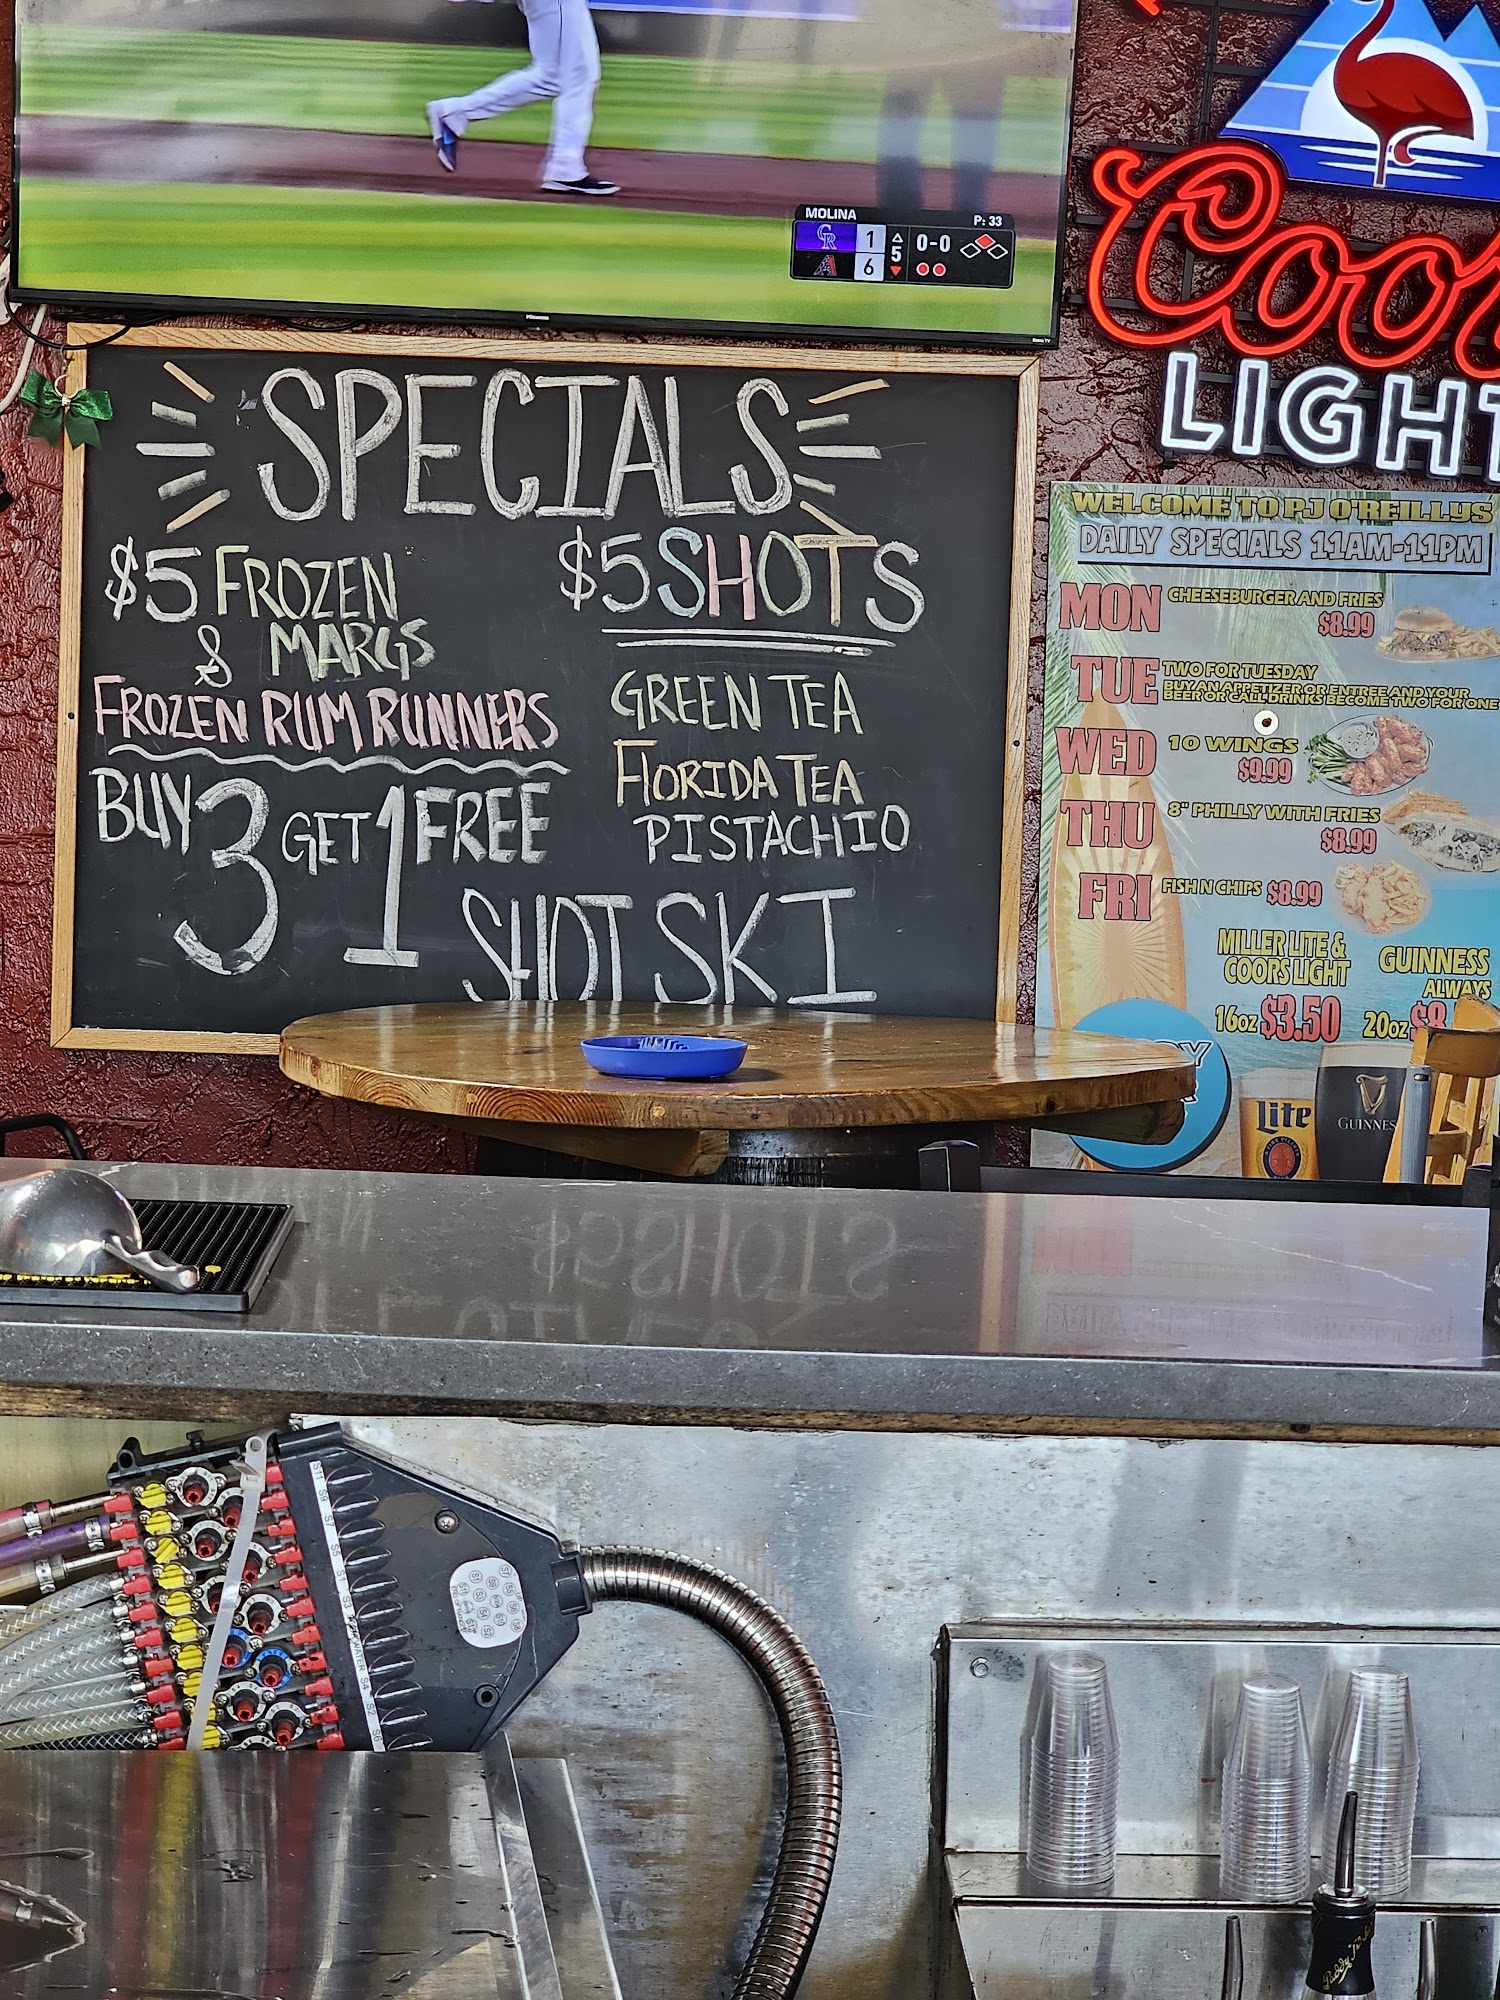 MOLINA P: 33
CR 1 5 0-0
A 6
Hisense
Roku TV
Coo
LIGHT
SPECIALS
$5 FROZEN
& MARGS
FROZEN RUM RUNNERS
BUY 3 GET 1 FREE
$5 SHOTS
GREEN TEA
FLORIDA TEA
PISTACHIO
SHOT SKI
WELCOME TO PJ O'REILLYS
DAILY SPECIALS 11AM-11PM
MON CHEESEBURGER AND FRIES
$8.99
TUE TWO FOR TUESDAY
BUY AN APPETIZER OR ENTREE AND YOUR
BEER OR CALL DRINKS BECOME TWO FOR ONE
WED 10 WINGS
$9.99
THU 8" PHILLY WITH FRIES
$8.99
FRI FISH N CHIPS $8.99
MILLER LITE &
COORS LIGHT
16oz $3.50
GUINNESS
ALWAYS
20oz $8
Lite
GUINNES
S11 S9 S7 S5 S1 S3 WATER S4 S2 S6